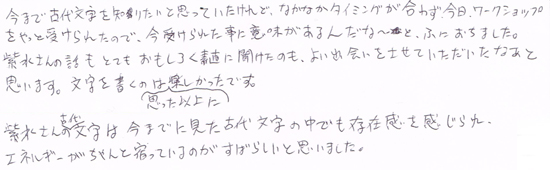 今まで古代文字を知りたいと思っていたけれど、なかなかタイミングが合わず、今日、ワークショップ
をやっと受けられたので、今受けられた事に意味があるんだな〜と、ふにおちました。
紫水さんの話もとてもおもしろく素直に聞けたのも、よい出会いをさせていただいたなあと
思います。文字を書くのは楽しかったです。
思った以上に
紫水さんの古代文字は今までに見た古代文字の中でも存在感を感じられ、
エネルギーがちゃんと宿っているのがすばらしいと思いました。